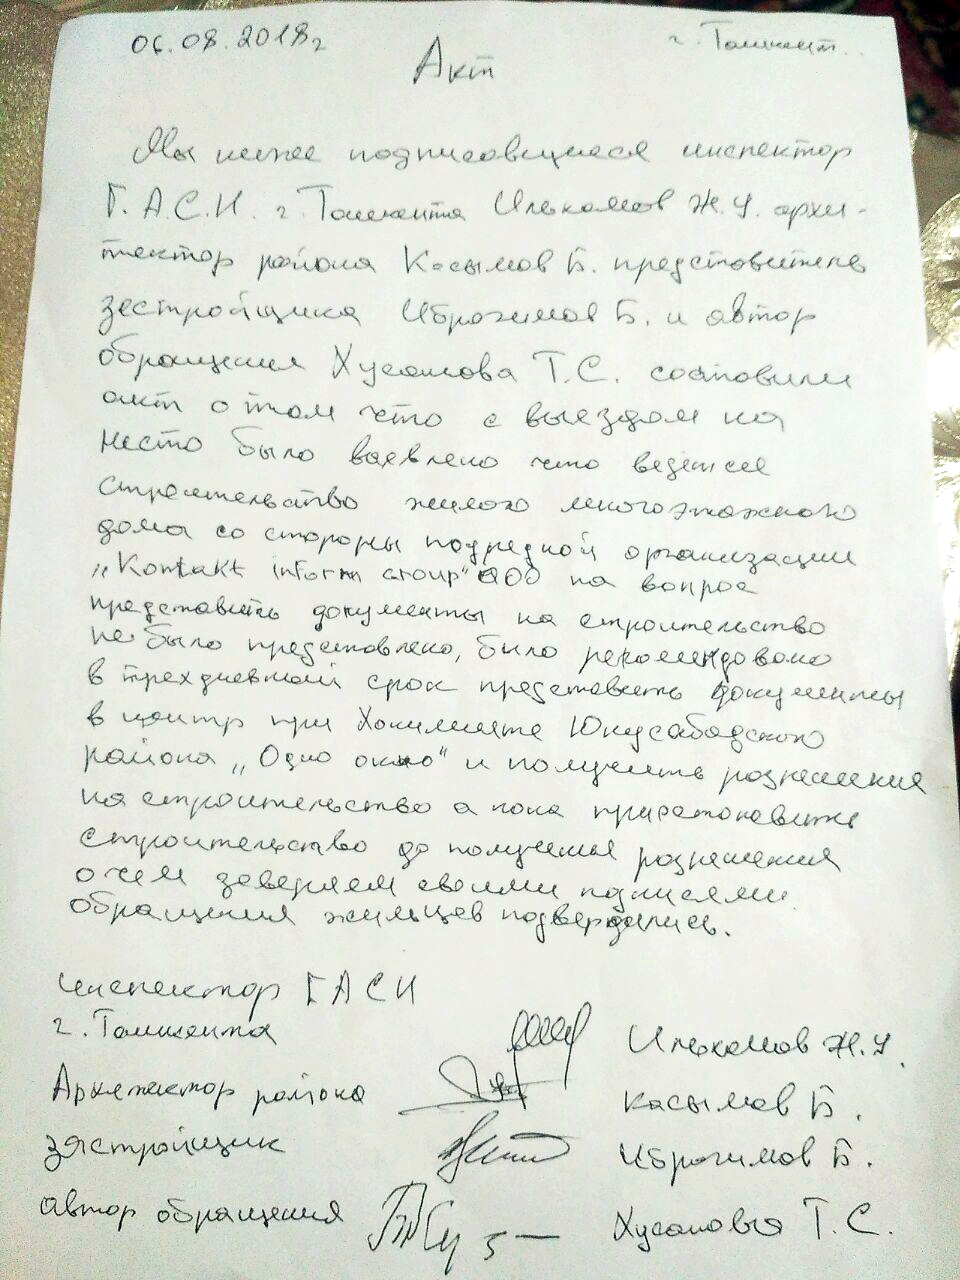 06.08.2018г
г. Ташкент.
Акт
Мы ниже подписавшиеся инспектор
Г.А.С.И. г. Ташкента Ильхамов Ж.У. архи-
тектор района Касымов Б. представитель
застройщика Иброгимов Б. и автор
обращения Хусанова Т.С. составили
акт о том что с выездом на
место было выевлено что ведется
строительство жилого многоэтажного
дома со стороны подрядной организации
"Kontakt inform group" ООО на вопрос
представить документы на строительство
не было представлено, было рекомендовано
в трехдневный срок представить документы
в центр при Хокимияте Юнусабадского
района "Одно окно" и получить разрешения
на строительство а пока приостановить
строительство до получения разрешения
о чем заверяем своими подписями.
обращения жильцев подвердились.
инспектор ГАСИ
г. Ташкента Ильхамов Ж.У.
Архитектор района Касымов Б.
застройщик Иброгимов Б.
автор обращения Хусанова Т.С.